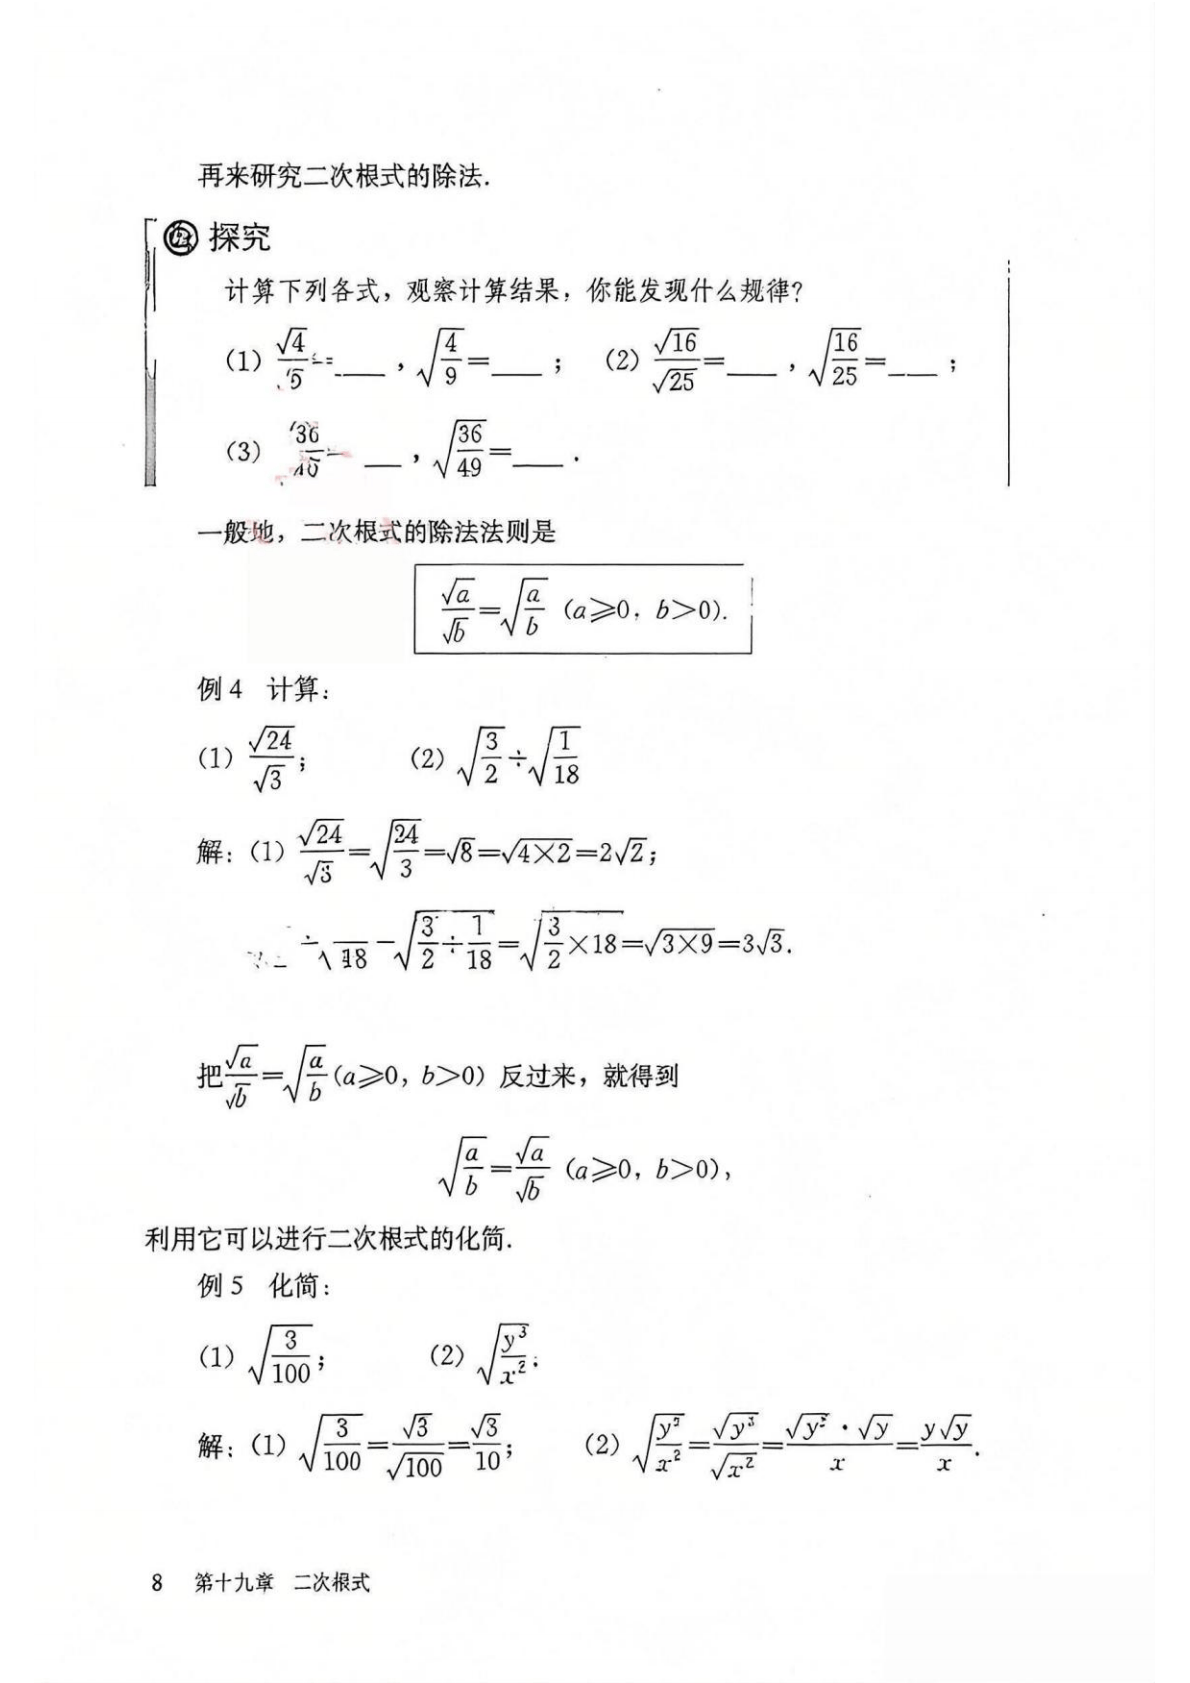 再来研究二次根式的除法.
探究
计算下列各式，观察计算结果，你能发现什么规律？
(1) √4/ = ___，√(4/9) = ___； (2) √16/√25 = ___，√(16/25) = ___；
(3) ___，√(36/49) = ___.
一般地，二次根式的除法法则是
√a/√b = √(a/b) (a≥0，b>0).
例 4 计算：
(1) √24/√3； (2) √(3/2) ÷ √(1/18)
解：(1) √24/√3 = √(24/3) = √8 = √(4×2) = 2√2；
÷ √(3/2 ÷ 1/18) = √(3/2 × 18) = √(3×9) = 3√3.
把 √a/√b = √(a/b) (a≥0，b>0) 反过来，就得到
√(a/b) = √a/√b (a≥0，b>0)，
利用它可以进行二次根式的化简.
例 5 化简：
(1) √(3/100)； (2) √(y³/x²)；
解：(1) √(3/100) = √3/√100 = √3/10； (2) √(y³/x²) = √y³/√x² = √y²·√y/x = y√y/x.
8 第十九章 二次根式